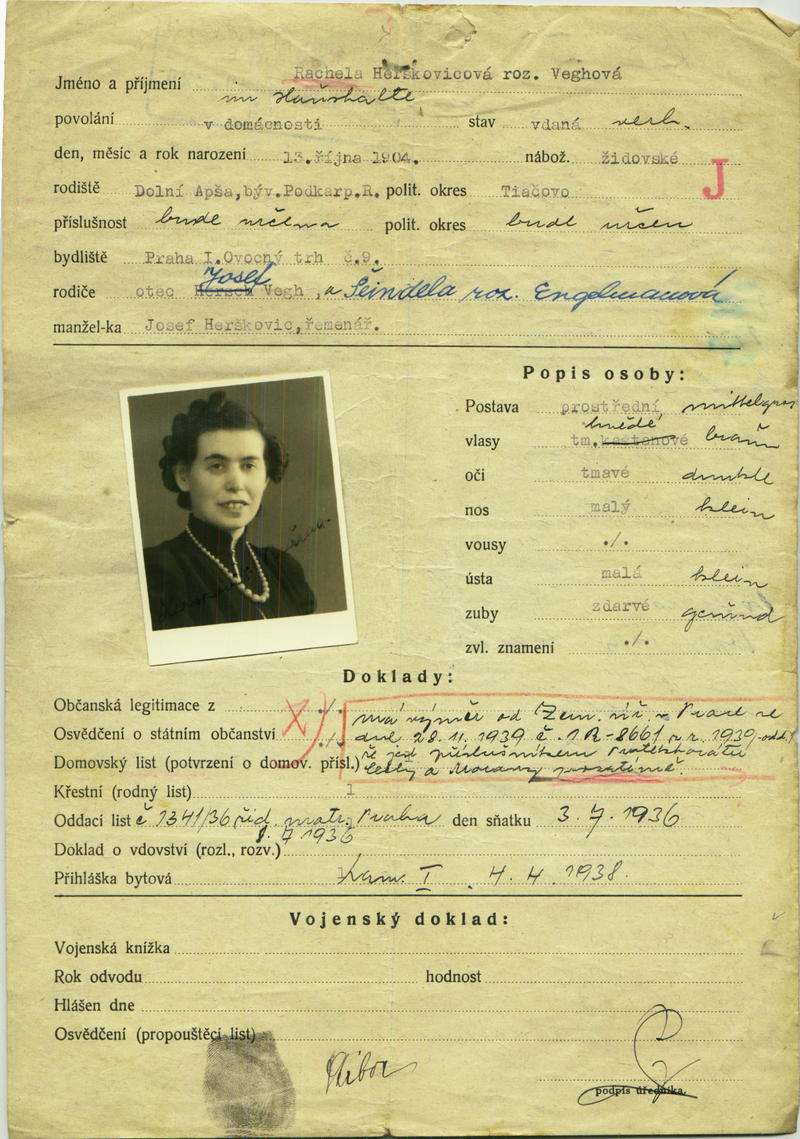 Jméno a příjmení Rachela Herškovicová roz. Veghová
im Haushalte
povolání v domácnosti stav vdaná verh.
den, měsíc a rok narození 13.října 1904. nábož. židovské J
rodiště Dolní Apša,býv.Podkarp.R. polit. okres Tiačovo
příslušnost bude určena polit. okres bude určen
bydliště Praha I.Ovocný trh č.9.
Josef
rodiče otec Hersch Vegh, a Šeindela roz. Engelmanová
manžel-ka Josef Herškovic,řemenář.
Popis osoby:
Postava prostřední, mittelgross
hnědé
vlasy tm.kaštanové braun
oči tmavé dunkle
nos malý klein
vousy ./.
ústa malá klein
zuby zdarvé gesund
zvl. znamení ./.
Doklady:
Občanská legitimace z ./. má výměr od Zem. úř. v Praze ze
Osvědčení o státním občanství ./. dne 28.11.1939 č. 1R-8661 r. 1939
Domovský list (potvrzení o domov. přísl.) že jest příslušníkem Protektorátu
Čechy a Morava prozatímně.
Křestní (rodný list) 1
Oddací list č 1341/36 řid. matr. Praha den sňatku 3.7.1936
8.7 1936
Doklad o vdovství (rozl., rozv.)
Přihláška bytová kom. I 4.4.1938.
Vojenský doklad:
Vojenská knížka
Rok odvodu hodnost
Hlášen dne
Osvědčení (propouštěcí list)
podpis úředníka.